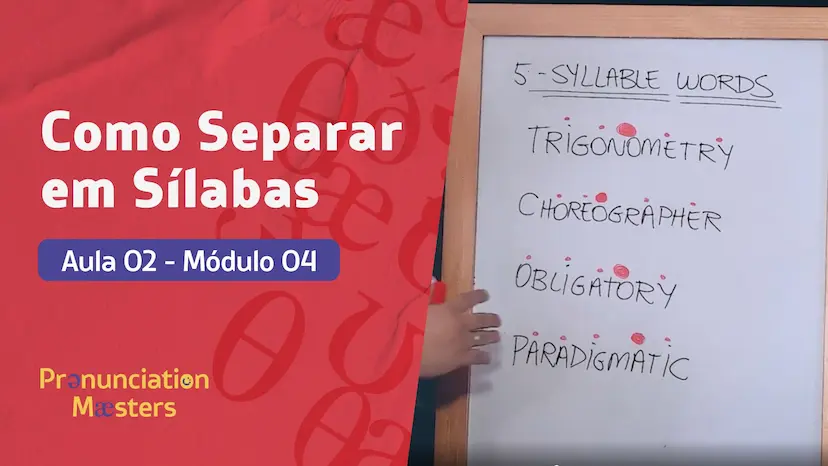 Como Separar
em Sílabas
Aula 02 - Módulo 04
Prənunciation
Mæsters
5-SYLLABLE WORDS
TRIGONOMETRY
CHOREOGRAPHER
OBLIGATORY
PARADIGMATIC